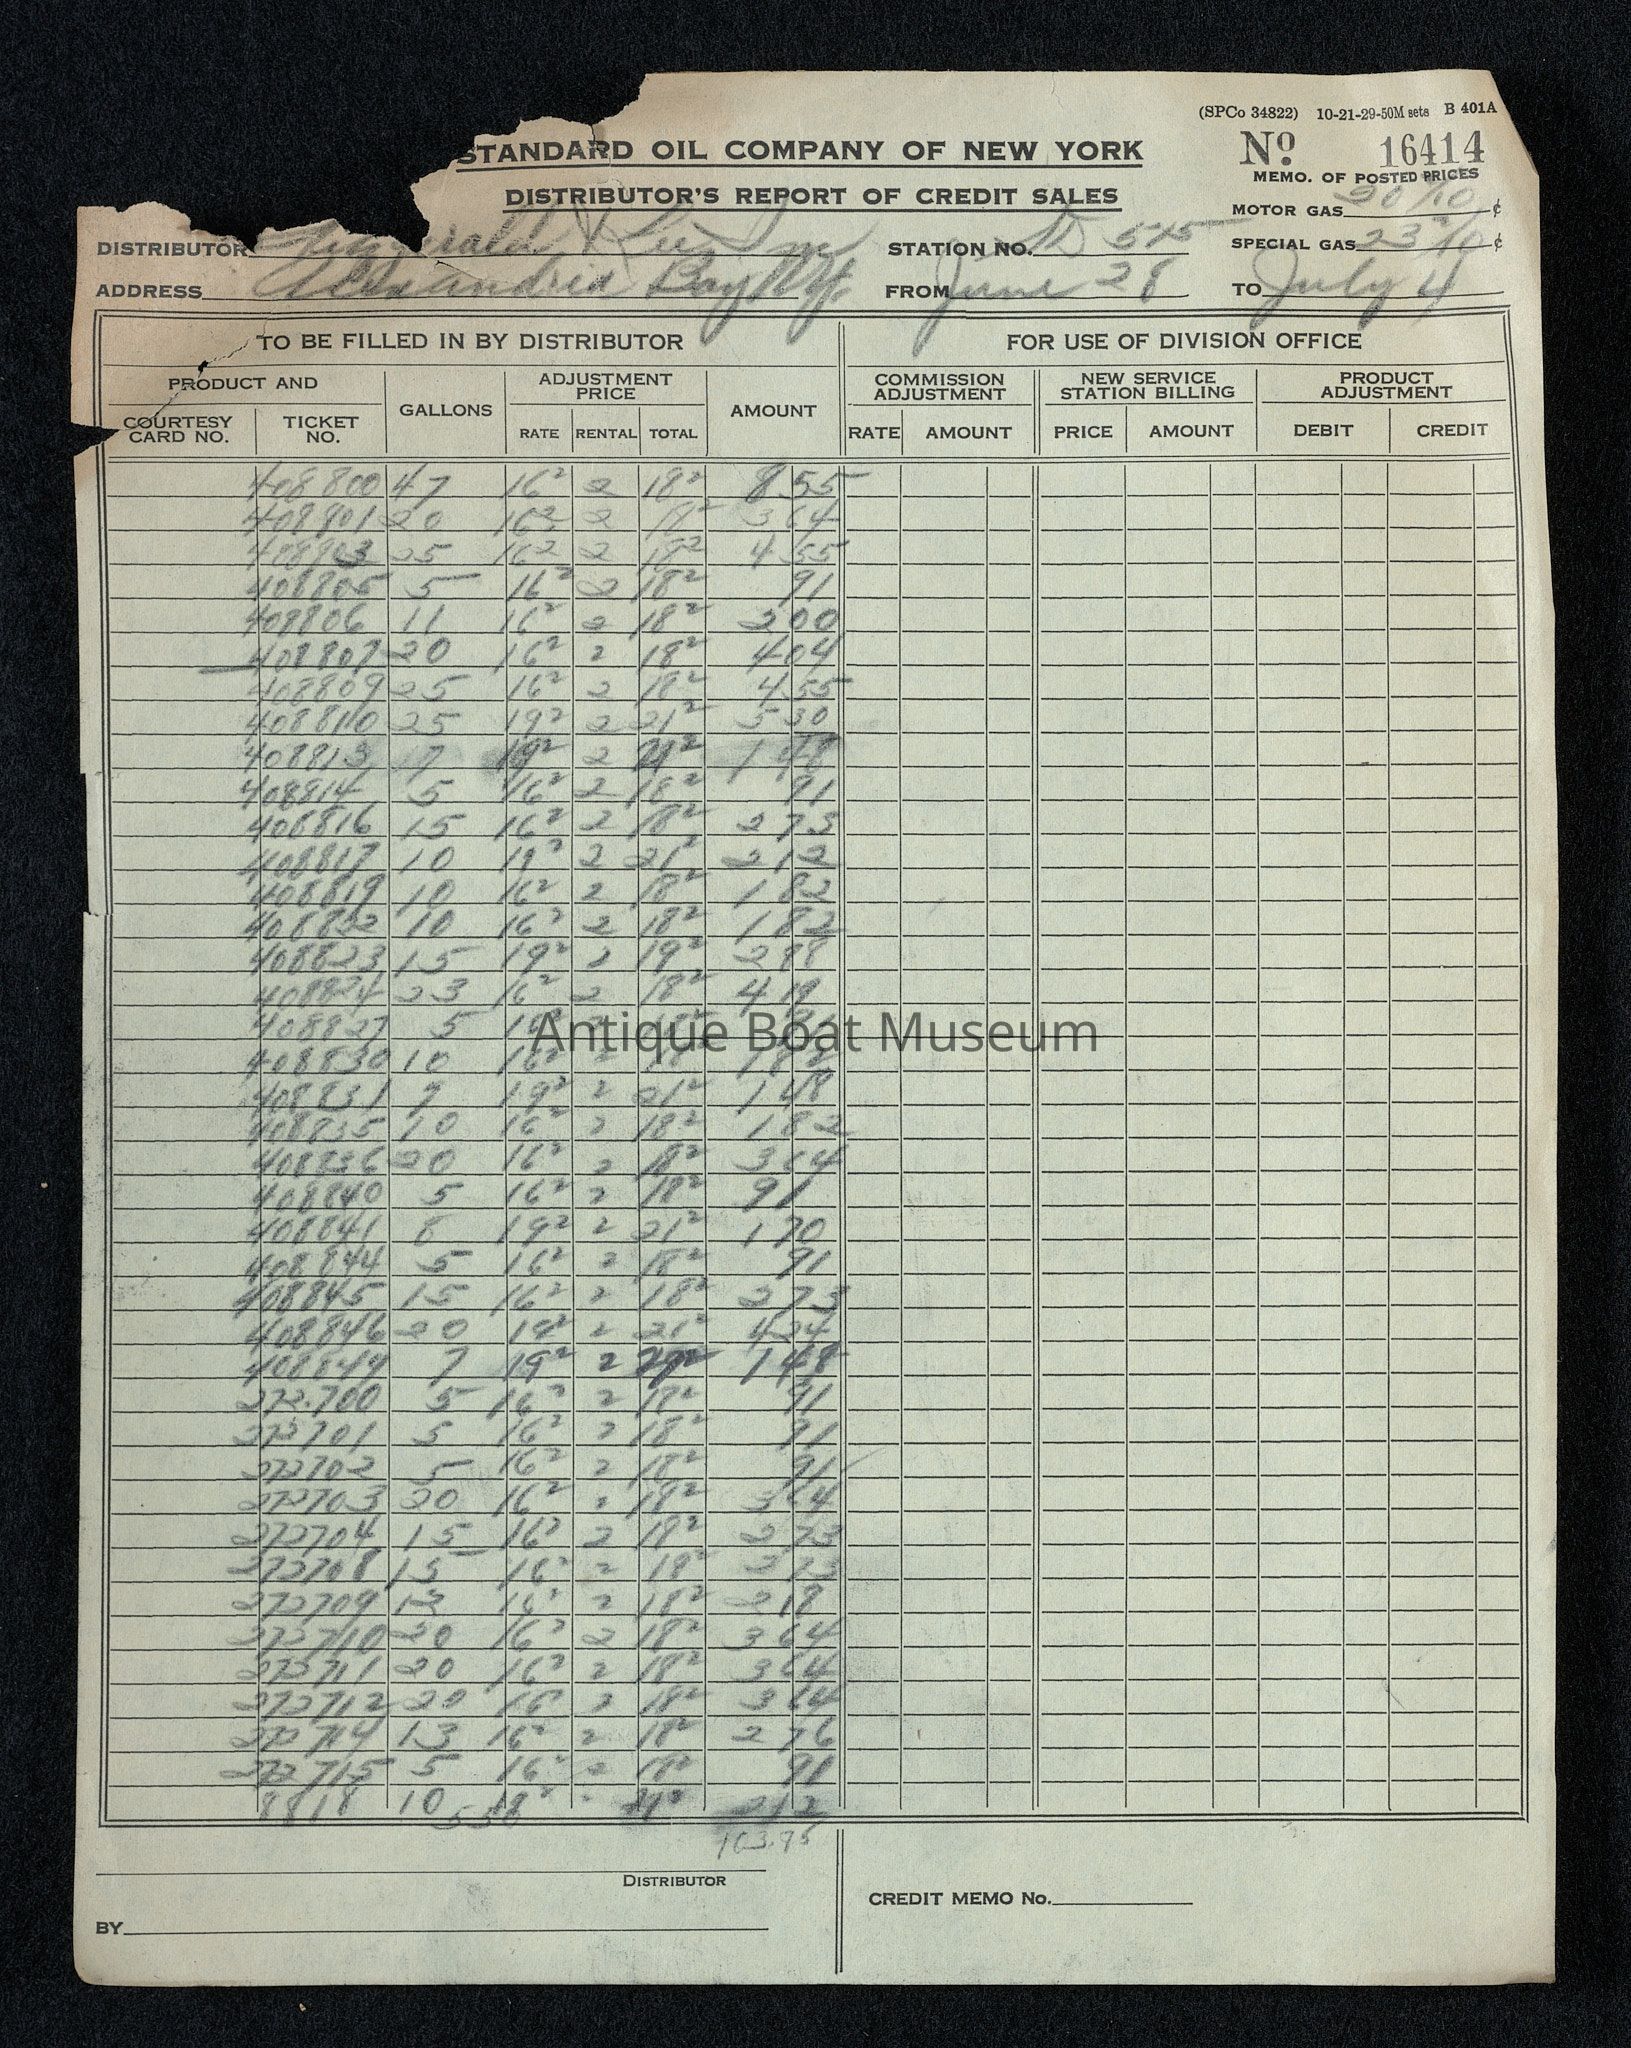 (SPCo 34822) 10-21-29-50M sets B 401A
STANDARD OIL COMPANY OF NEW YORK
No. 16414
DISTRIBUTOR'S REPORT OF CREDIT SALES
MEMO. OF POSTED PRICES
MOTOR GAS 20 2/10 ¢
DISTRIBUTOR Fitzgerald & Lee STATION NO. 545 SPECIAL GAS 23 2/10 ¢
ADDRESS Alexandria Bay N.Y. FROM June 28 TO July 4
TO BE FILLED IN BY DISTRIBUTOR FOR USE OF DIVISION OFFICE
PRODUCT AND GALLONS ADJUSTMENT PRICE AMOUNT COMMISSION ADJUSTMENT NEW SERVICE STATION BILLING PRODUCT ADJUSTMENT
COURTESY CARD NO. TICKET NO. RATE RENTAL TOTAL RATE AMOUNT PRICE AMOUNT DEBIT CREDIT
408800 47 16² 2 18² 8 55
408801 20 16² 2 18² 3 64
408803 25 16² 2 18² 4 55
408805 5 16² 2 18² 91
408806 11 16² 2 18² 2 00
408807 20 16² 2 18² 4 04
408809 25 16² 2 18² 4 55
408810 25 19² 2 21² 5 30
408813 7 19² 2 21² 1 48
408814 5 16² 2 18² 91
408816 15 16² 2 18² 2 73
408817 10 19² 2 21² 2 12
408819 10 16² 2 18² 1 82
408822 10 16² 2 18² 1 82
408823 15 19² 2 19² 2 88
408824 23 16² 2 18² 4 19
408827 5 16²
Antique Boat Museum
408830 10 16² 2 18² 1 82
408831 7 19² 2 21² 1 48
408835 10 16² 2 18² 1 82
408836 20 16² 2 18² 3 64
408840 5 16² 2 18² 91
408841 8 19² 2 21² 1 70
408844 5 16² 2 18² 91
408845 15 16² 2 18² 2 73
408846 20 19² 2 21² 4 24
408849 7 19² 2 21² 1 48
272700 5 16² 2 18² 91
272701 5 16² 2 18² 91
272702 5 16² 2 18² 91
272703 20 16² 2 18² 3 64
272704 15 16² 2 18² 2 73
272708 15 16² 2 18² 2 73
272709 12 16² 2 18² 2 18
272710 20 16² 2 18² 3 64
272711 20 16² 2 18² 3 64
272712 20 16² 2 18² 3 64
272714 13 16² 2 18² 2 76
272715 5 16² 2 18² 91
8818 10 21² 2 12
163.75
DISTRIBUTOR
CREDIT MEMO No.
BY